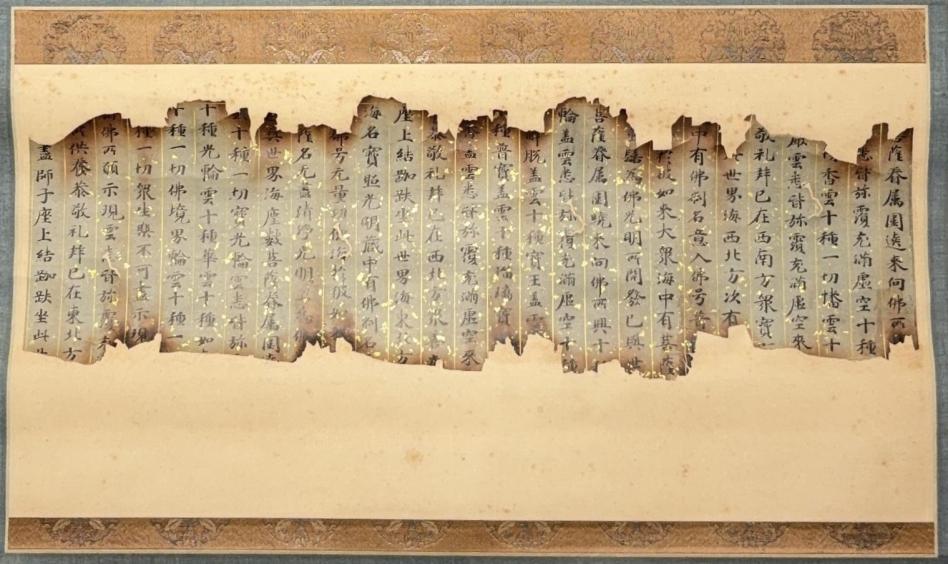 薩眷屬圍遶來向佛所
悉皆弥覆充滿虛空十種
香雲十種一切幡雲十
嚴雲悉皆弥覆充滿虛空來
敬礼拜已在西南方衆寶
世界海西北方次有
中有佛刹名意入佛号普
彼如來大衆海中有菩薩
為佛光明所開發已與世
菩薩眷屬圍遶來向佛所興十
輪蓋雲悉皆弥覆充滿虛空十種
脫蓋雲十種寶王蓋雲
種普寶蓋雲十種瑠璃寶
蓋雲悉皆弥覆充滿虛空來
恭敬礼拜已在西北方衆
座上結跏趺坐此世界海東北方
海名寶照光明藏中有佛刹名
号无量功德海於彼如
薩名无盡清淨光明王為佛
與世界海塵數菩薩眷屬圍遶
十種一切寶光輪雲悉皆弥
十種光輪雲十種華雲十種如
十種一切佛境界輪雲十種一
種一切衆生樂不可盡示現
佛所願示現雲悉皆弥覆
供養恭敬礼拜已在東北方
蓋師子座上結跏趺坐此世